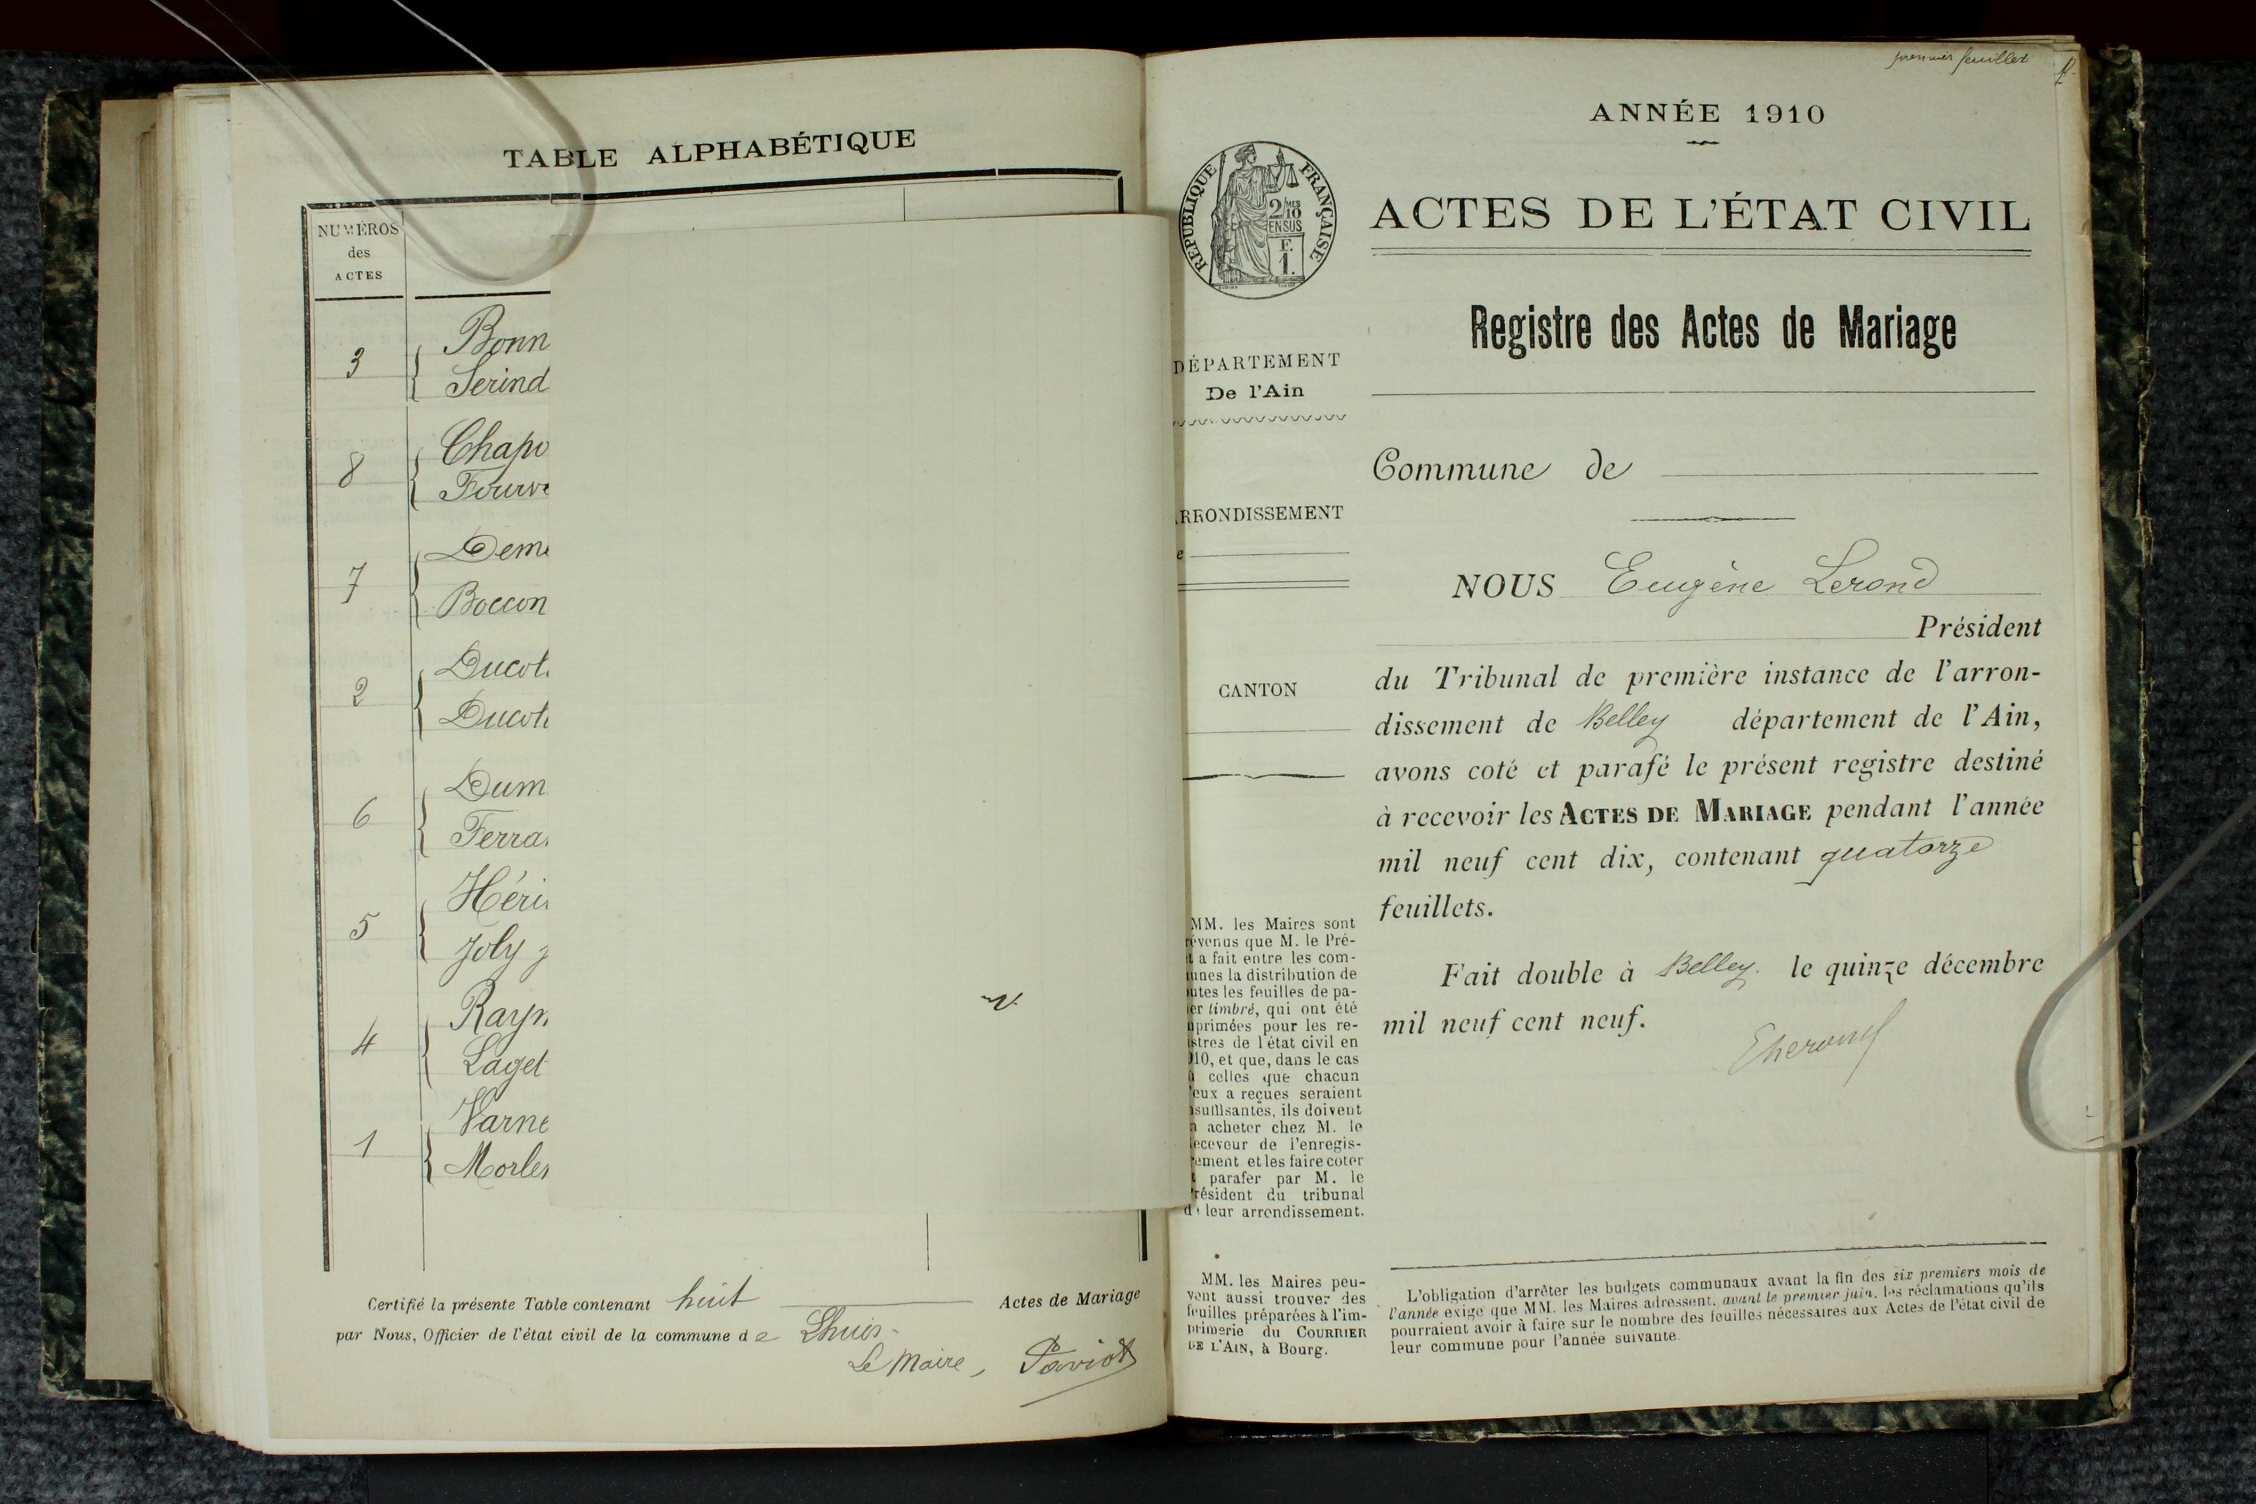 TABLE ALPHABÉTIQUE
NUMÉROS
des
ACTES
3
Bonn
Serind
8
Chapo
Fourve
7
Deme
Boccon
2
Ducot
Ducot
6
Dum
Ferra
5
Héri
Joly
4
Rayn
Laget
1
Varne
Morle
Certifié la présente Table contenant huit Actes de Mariage
par Nous, Officier de l'état civil de la commune de Lhuis
Le Maire, Paviot
premier feuillet
ANNÉE 1910
RÉPUBLIQUE FRANÇAISE
2/10 MES
EN SUS
F.
1.
ACTES DE L'ÉTAT CIVIL
Registre des Actes de Mariage
DÉPARTEMENT
De l'Ain
RRONDISSEMENT
e
CANTON
MM. les Maires sont
révenus que M. le Pré-
t a fait entre les com-
unes la distribution de
utes les feuilles de pa-
er timbré, qui ont été
primées pour les re-
istres de l'état civil en
10, et que, dans le cas
ù celles que chacun
'eux a reçues seraient
suffisantes, ils doivent
n acheter chez M. le
eceveur de l'enregis-
rement et les faire coter
t parafer par M. le
résident du tribunal
de leur arrondissement.
MM. les Maires peu-
vent aussi trouver des
feuilles préparées à l'im-
primerie du COURRIER
DE L'AIN, à Bourg.
Commune de
NOUS Eugène Lerond
Président
du Tribunal de première instance de l'arron-
dissement de Belley département de l'Ain,
avons coté et parafé le présent registre destiné
à recevoir les ACTES DE MARIAGE pendant l'année
mil neuf cent dix, contenant quatorze
feuillets.
Fait double à Belley. le quinze décembre
mil neuf cent neuf.
L'obligation d'arrêter les budgets communaux avant la fin des six premiers mois de
l'année exige que MM. les Maires adressent, avant le premier juin, les réclamations qu'ils
pourraient avoir à faire sur le nombre des feuilles nécessaires aux Actes de l'état civil de
leur commune pour l'année suivante.